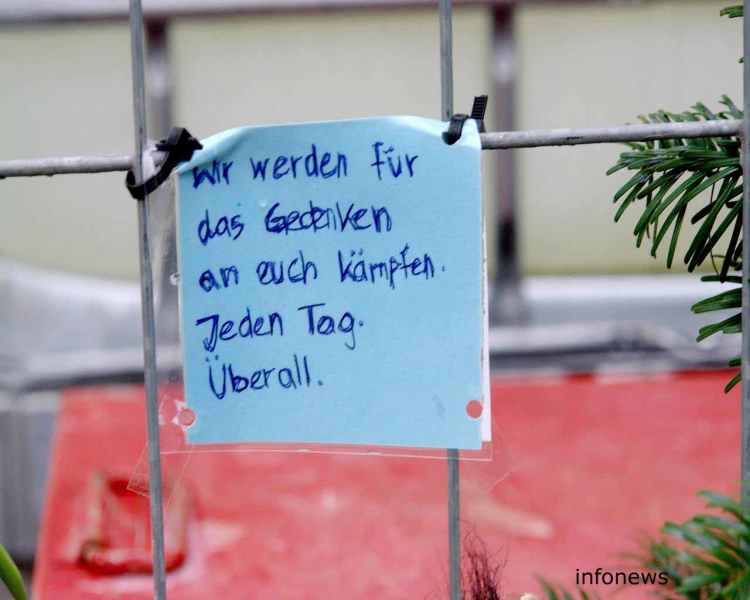 Wir werden für
das Gedenken
an euch kämpfen.
Jeden Tag.
Überall.
infonews